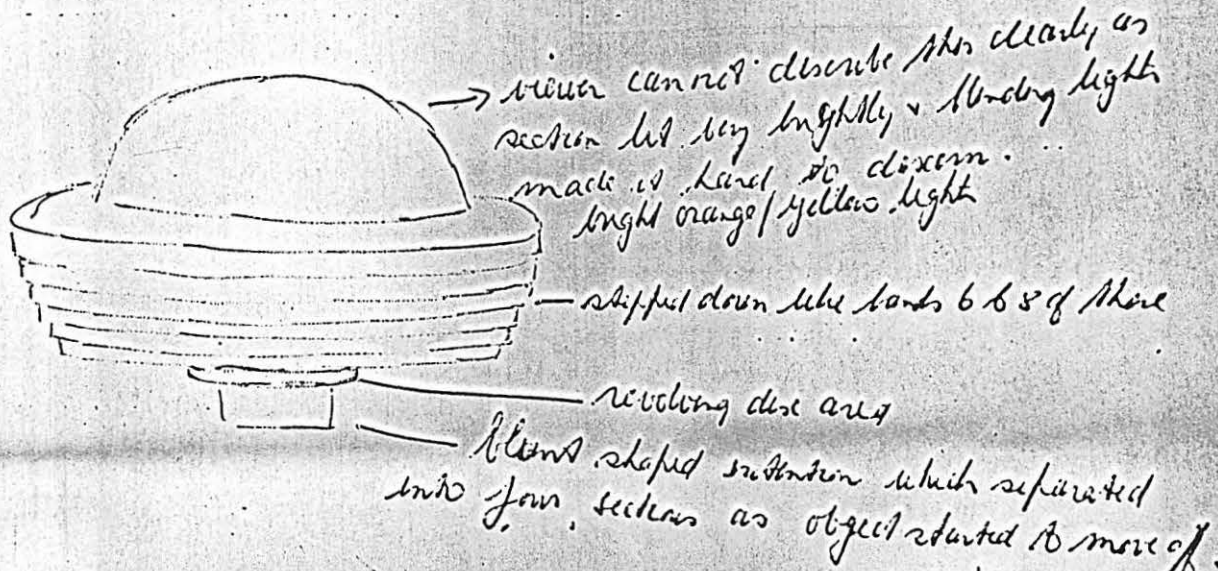 viewer cannot describe this clearly as
section lit very brightly & blinding lights
made it hard to discern.
bright orange/yellow lights
stepped down like bands 6 to 8 of these
revolving disc area
blunt shaped extention which separated
into four sections as object started to move off.